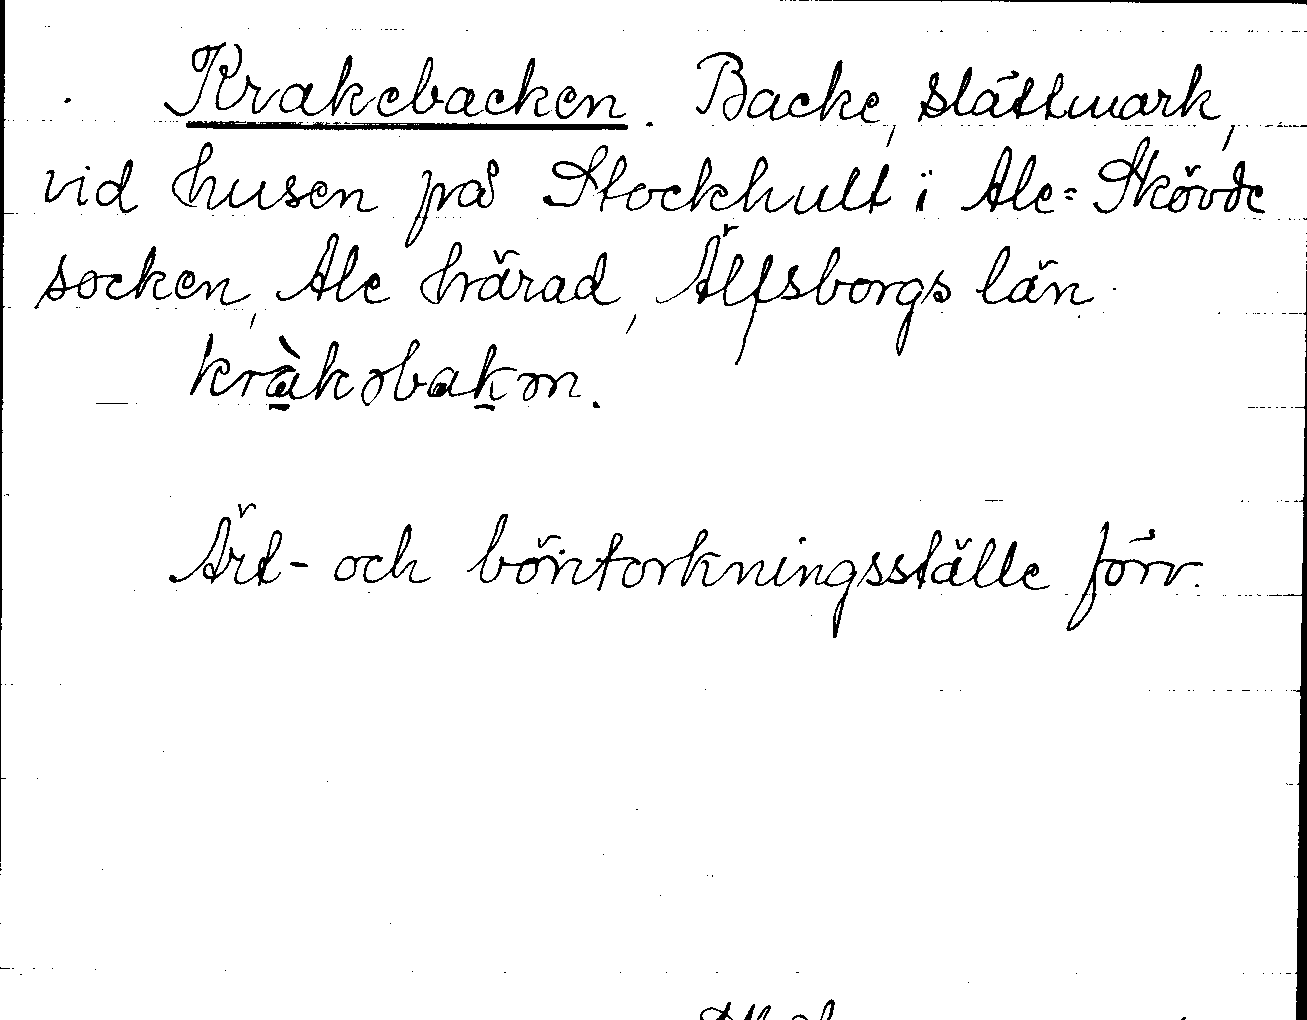 Krakebacken. Backe, slåttmark,
vid husen på Stockhult i Ale-Skövde
socken, Ale härad, Älfsborgs län.
kràkəbakən.
Ärt- och böntorkningsställe förr.